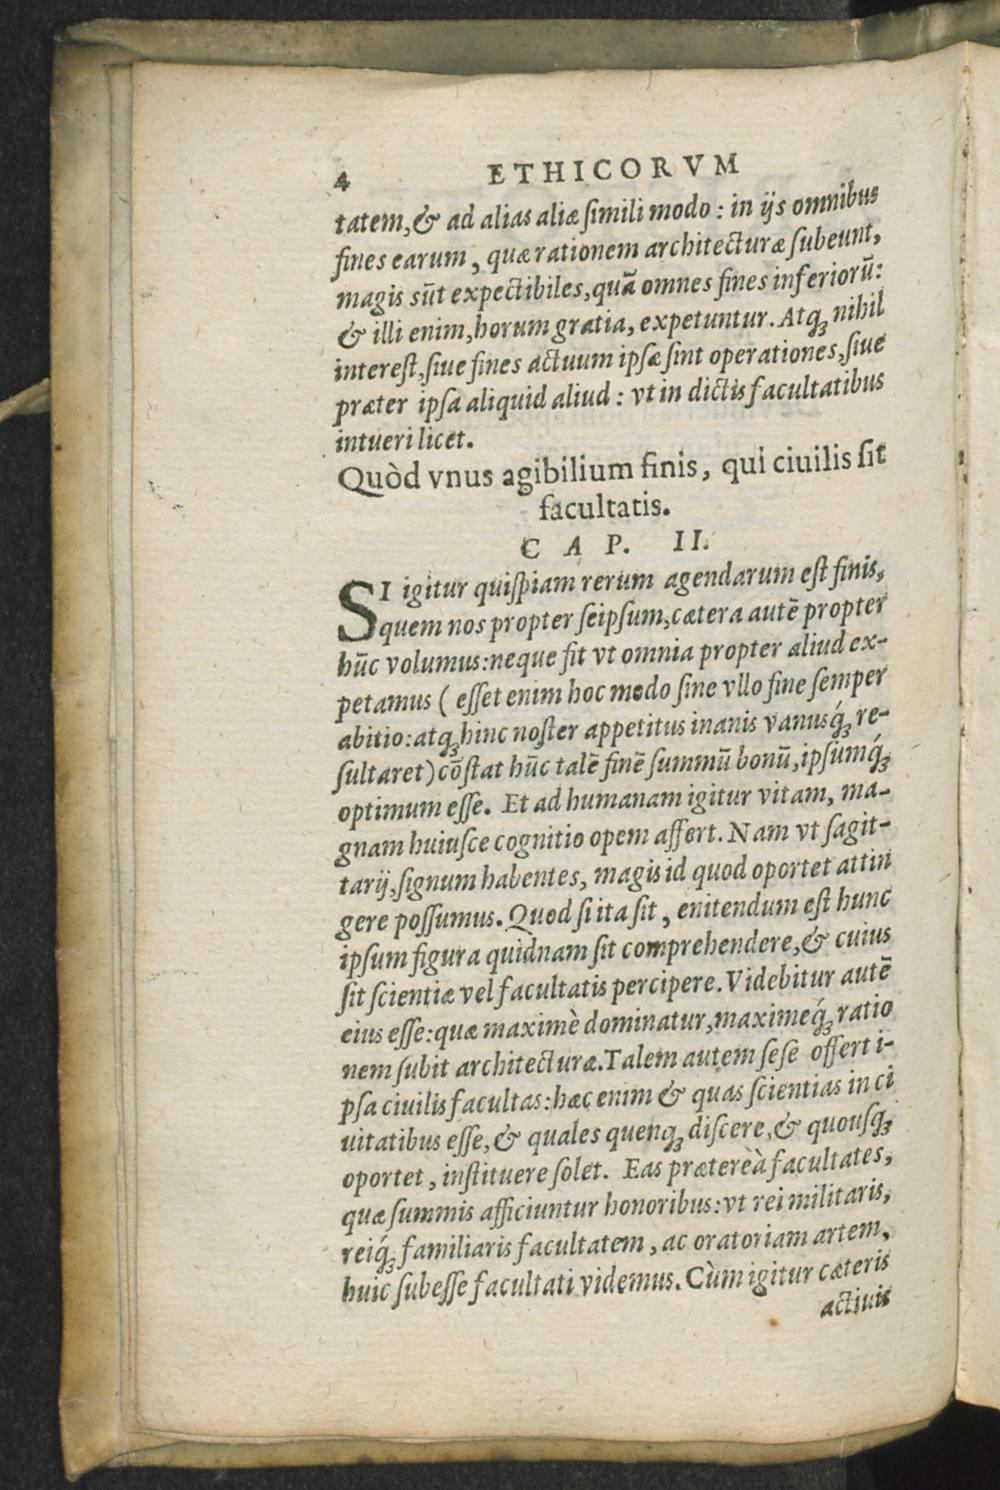 4 ETHICORVM
tatem,& ad alias aliæ ſimili modo : in ijs omnibus
fines earum , quæ rationem architecturæ ſubeunt,
magis sūt expectibiles,quā omnes fines inferiorū:
& illi enim,horum gratia, expetuntur. Atqꝫ nihil
intereſt,ſiue fines actuum ipſæ ſint operationes,ſiue
præter ipſa aliquid aliud : vt in dictis facultatibus
intueri licet.
Quòd vnus agibilium finis, qui ciuilis ſit
facultatis.
CAP. II.
SI igitur quiſpiam rerum agendarum eſt finis,
quem nos propter ſeipſum,cætera autē propter
hūc volumus:neque fit vt omnia propter aliud ex-
petamus ( eſſet enim hoc modo ſine vllo fine ſemper
abitio:atqꝫ hinc noſter appetitus inanis vanusq́ꝫ re-
ſultaret)cōſtat hūc talē finē ſummū bonū,ipſumq́ꝫ
optimum eſſe. Et ad humanam igitur vitam, ma-
gnam huiuſce cognitio opem affert. Nam vt ſagit-
tarij,ſignum habentes, magis id quod oportet attin
gere poſſumus. Quod ſi ita ſit , enitendum eſt hunc
ipſum figura quidnam ſit comprehendere,& cuius
ſit ſcientiæ vel facultatis percipere. Videbitur autē
eius eſſe:quæ maximè dominatur,maximeq́ꝫ ratio
nem ſubit architecturæ.Talem autem ſeſe offert i-
pſa ciuilis facultas:hæc enim & quas ſcientias in ci
uitatibus eſſe,& quales quenqꝫ diſcere,& quouſqꝫ
oportet , inſtituere ſolet. Eas prætereà facultates,
quæ ſummis afficiuntur honoribus:vt rei militaris,
reiq́ꝫ familiaris facultatem , ac oratoriam artem,
huic ſubeſſe facultati videmus. Cùm igitur cæteris
actiuis